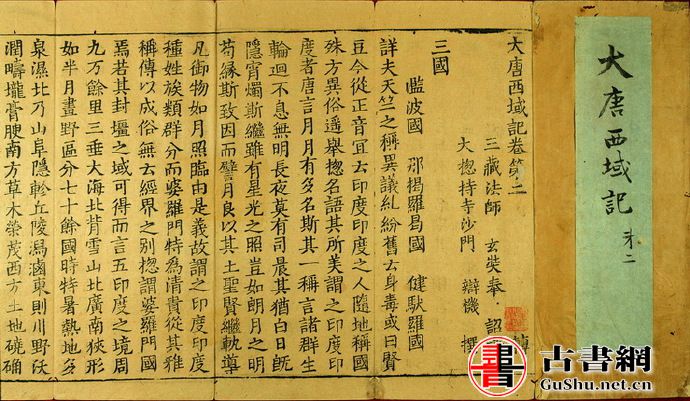 大唐西域記 㐧二
大唐西域記卷第二
三藏法師 玄奘奉 詔
大揔持寺沙門 辯機 撰
三國
監波國 那揭羅曷國 健馱羅國
詳夫天竺之稱異議糺紛舊云身毒或曰賢
豆今從正音宜云印度印度之人隨地稱國
殊方異俗遥舉揔名語其所美謂之印度印
度者唐言月月有多名斯其一稱言諸群生
輪迴不息無明長夜莫有司晨其猶白日旣
隱宵燭斯繼雖有星光之照豈如朗月之明
苟緣斯致因而譬月良以其土聖賢繼軌導
凡御物如月照臨由是義故謂之印度印度
種姓族類群分而婆羅門特為清貴從其雅
稱傳以成俗無云經界之別揔謂婆羅門國
焉若其封壃之域可得而言五印度之境周
九万餘里三垂大海北背雪山北廣南狹形
如半月畫野區分七十餘國時特暑熱地多
泉濕北乃山阜隱軫丘陵潟鹵東則川野沃
潤疇壠膏腴南方草木榮茂西方土地磽确
書 古書網
GuShu.net.cn